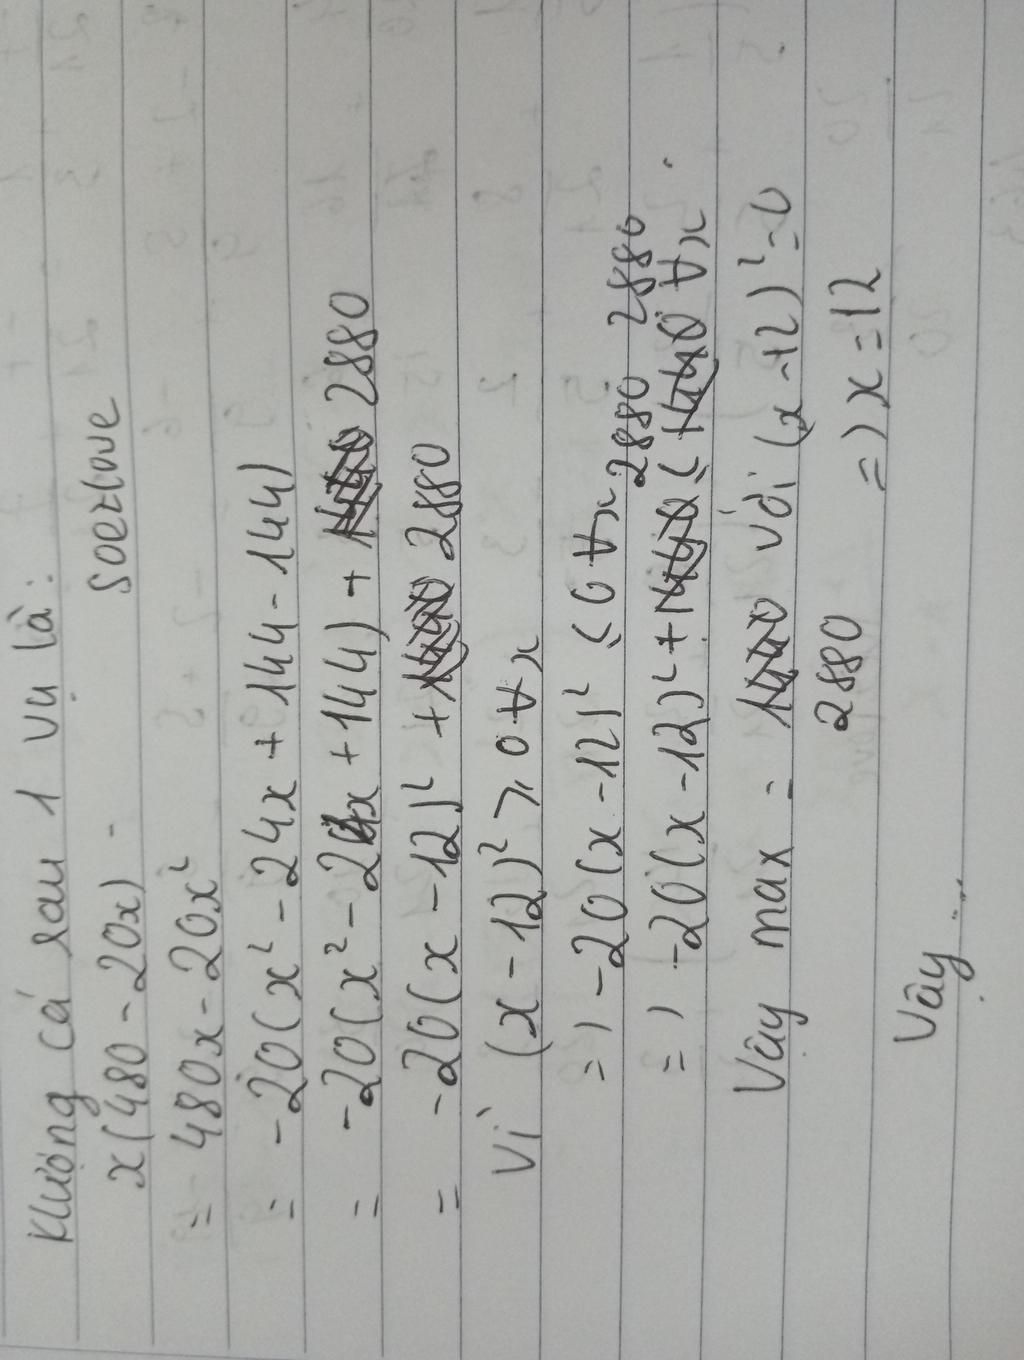 Klượng cá sau 1 vụ là:
x(480 - 20x) - soezlove
= 480x - 20x²
= -20(x² - 24x + 144 - 144)
= -20(x² - 24x + 144) + 2880
= -20(x - 12)² + 2880
Vì (x - 12)² ≥ 0 ∀x
=) -20(x - 12)² ≤ 0 ∀x
=) -20(x - 12)² + 2880 ≤ 2880 ∀x.
Vậy max = 2880 với (x - 12)² = 0
=) x = 12
Vậy ...